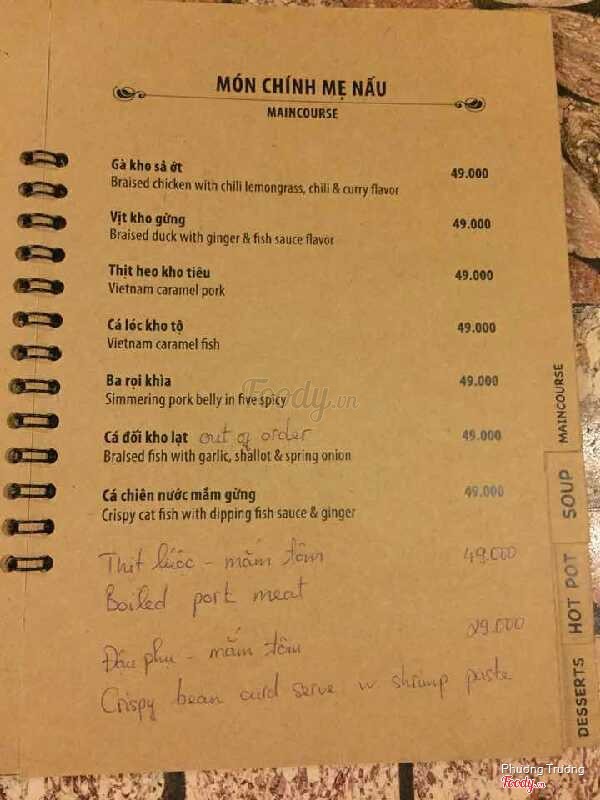 MÓN CHÍNH MẸ NẤU
MAINCOURSE
Gà kho sả ớt 49.000
Braised chicken with chili lemongrass, chili & curry flavor
Vịt kho gừng 49.000
Braised duck with ginger & fish sauce flavor
Thịt heo kho tiêu 49.000
Vietnam caramel pork
Cá lóc kho tộ 49.000
Vietnam caramel fish
Ba rọi khìa 49.000
Simmering pork belly in five spicy
Cá đối kho lạt out of order 49.000
Braised fish with garlic, shallot & spring onion
Cá chiên nước mắm gừng 49.000
Crispy cat fish with dipping fish sauce & ginger
Thịt luộc - mắm tôm 49.000
Boiled pork meat
Đậu phụ - mắm tôm 29.000
Crispy bean curd serve w shrimp paste
MAINCOURSE
SOUP
HOT POT
DESSERTS
Foody.vn
Phương Trương
Foody.vn